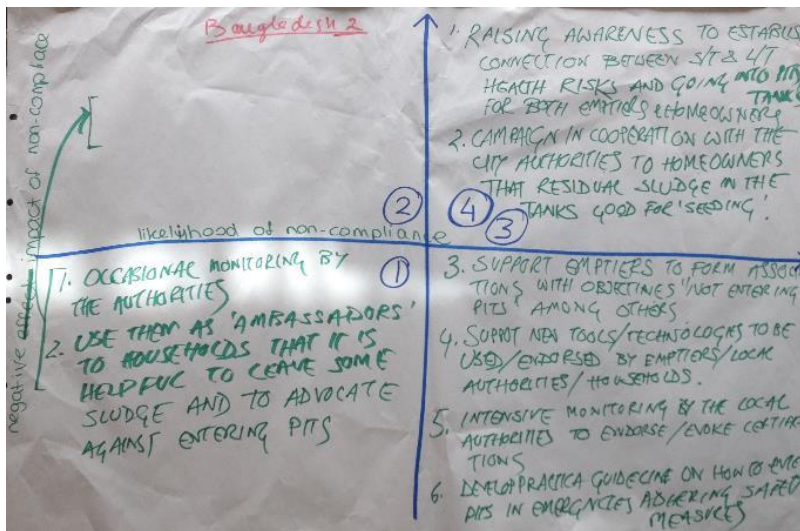 Bangladesh 2
negative effect impact of non-compliance
likelihood of non-compliance
2
4
3
1
1. RAISING AWARENESS TO ESTABLIS
CONNECTION BETWEEN S/T & L/T
HEALTH RISKS AND GOING INTO PITS
TANKS
FOR BOTH EMPTIERS & HOMEOWNERS
2. CAMPAIGN IN COOPERATION WITH THE
CITY AUTHORITIES TO HOMEOWNERS
THAT RESIDUAL SLUDGE IN THE
TANKS GOOD FOR 'SEEDING'.
1. OCCASIONAL MONITORING BY
THE AUTHORITIES
2. USE THEM AS 'AMBASSADORS'
TO HOUSEHOLDS THAT IT IS
HELPFUL TO LEAVE SOME
SLUDGE AND TO ADVOCATE
AGAINST ENTERING PITS
3. SUPPORT EMPTIERS TO FORM ASSOC
TIONS WITH OBJECTINES "NOT ENTERING
PITS" AMONG OTHERS
4. SUPPOT NEW TOOLS/TECHNOLOGIES TO BE
USED/ENDORSED BY EMPTIERS/LOCAL
AUTHORITIES/HOUSEHOLDS.
5. INTENSIVE MONITORING BY THE LOCAL
AUTHORITIES TO ENDORSE/EVOKE
TIONS
6. DEVELOP PRACTICA GUIDELINE ON HOW TO
PITS IN EMERGENCIES ADHERING SAFETY
MEASURES